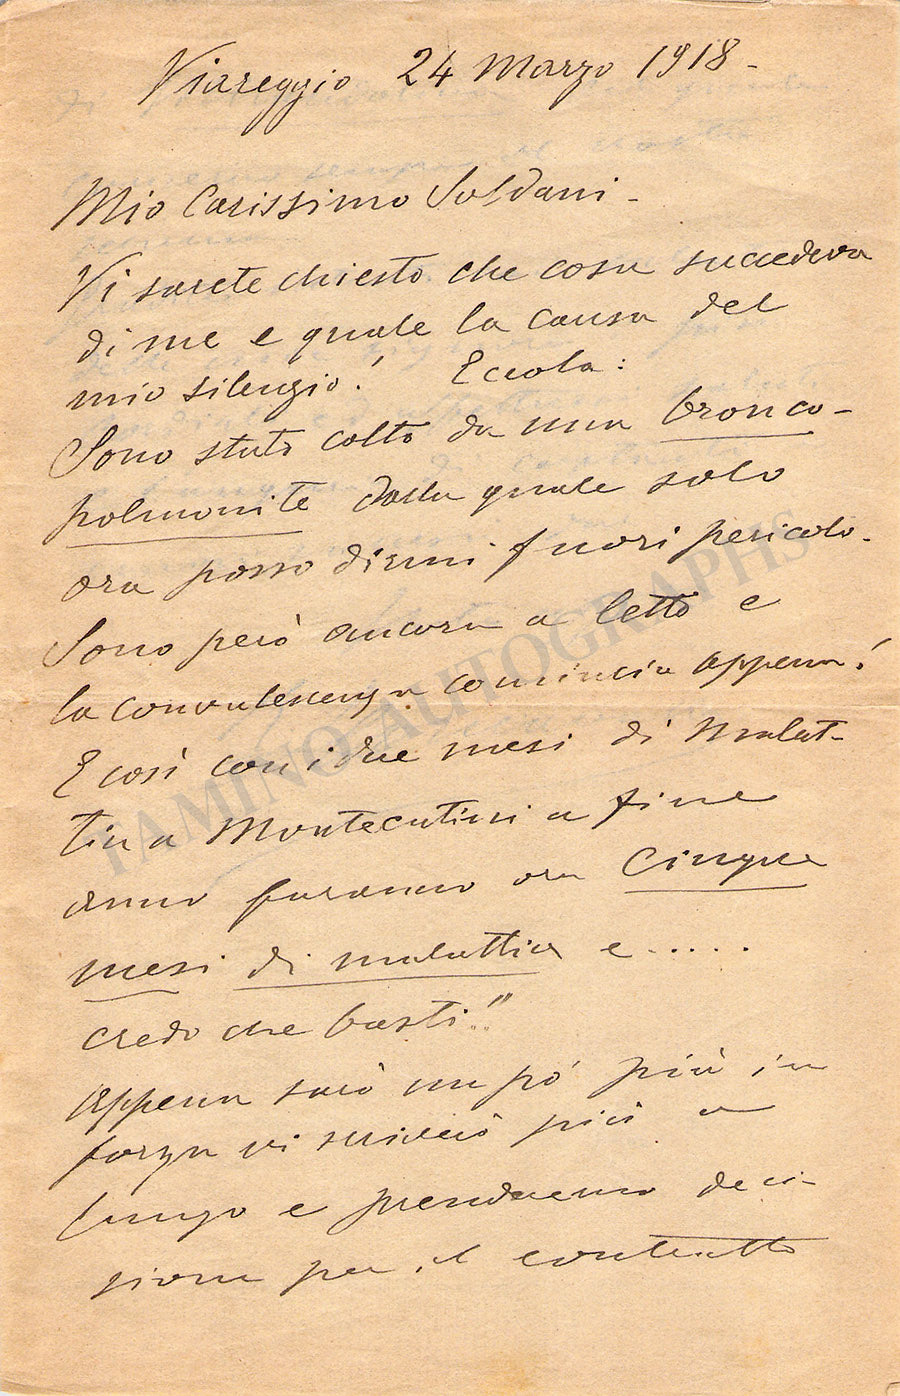 Viareggio 24 Marzo 1918 -
Mio Carissimo Soldani -
Vi sarete chiesto che cosa succedeva
di me e quale la causa del
mio silenzio! Eccola:
Sono stato colto da una bronco-
polmonite dalla quale solo
ora posso dirmi fuori pericolo.
Sono però ancora a letto e
la convalescenza comincia appena!
E così con i due mesi di malat-
tia a Montecatini a fine
anno faranno ora Cinque
mesi di malattia e.....
credo che basti!!
Appena sarò un pó più in
forza vi scriverò più a
lungo e prenderemo deci-
sione per il contratto
TAMINO AUTOGRAPHS